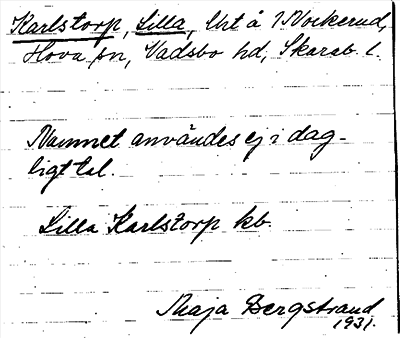 Karlstorp, Lilla, lht å 1 Nockerud,
Hova sn, Vadsbo hd, Skarab. l.
Namnet användes ej i dag-
ligt tal.
Lilla Karlstorp kb.
Maja Bergstrand
1931.